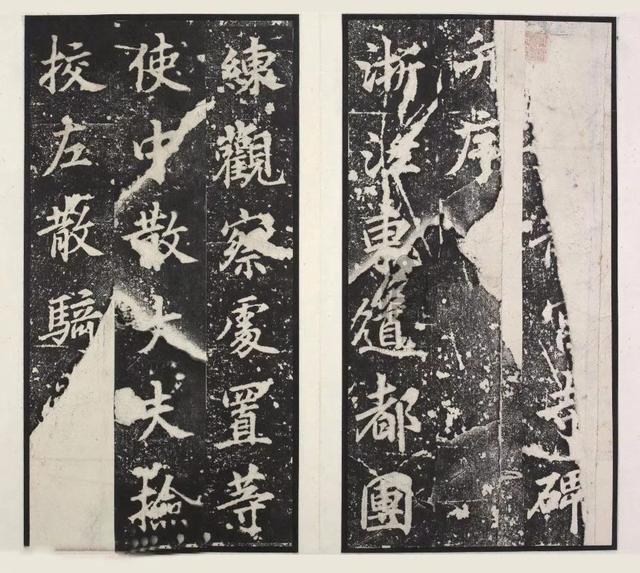 宮寺碑
并序
浙江東道都團
練觀察處置等
使中散大夫撿
挍左散騎